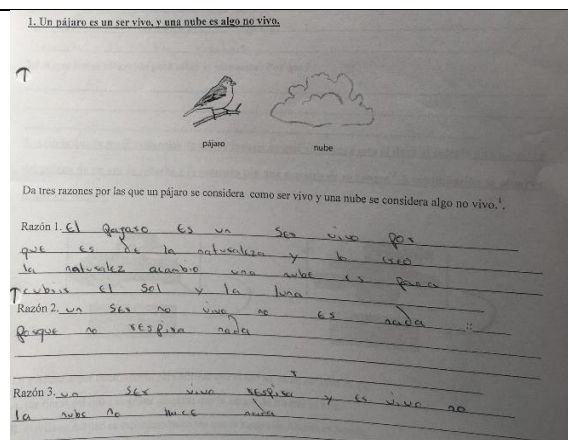 1. Un pájaro es un ser vivo, y una nube es algo no vivo.
pájaro nube
Da tres razones por las que un pájaro se considera como ser vivo y una nube se considera algo no vivo.
Razón 1. El pajaro es un ser vivo por
que es de la naturaleza y lo creo
la naturalez acambio una nube es para
cubrir el sol y la luna
Razón 2. un ser no vivo no es nada
porque no respira nada
Razón 3. un ser vivo respira y es vivo no
la nube no hace nada